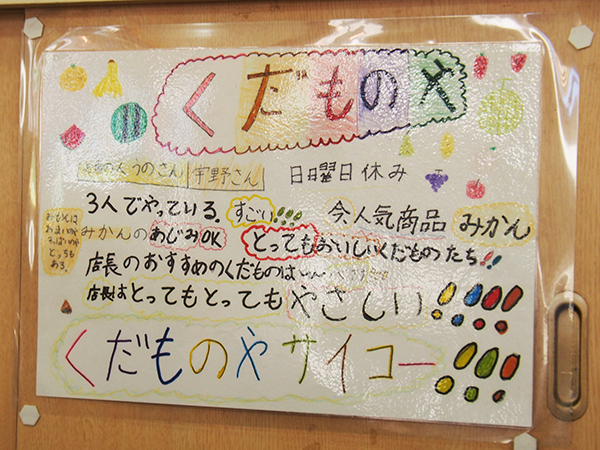 くだものや
店長の人 うのさん 宇野さん 日曜日休み
3人でやっている。すごい!!!! 今、人気商品 みかん
みかんのあじみOK とってもおいしいくだものたち!!
店長のおすすめのくだものは
店長はとってもとってもやさしい!!!!
くだものやサイコー!!!!